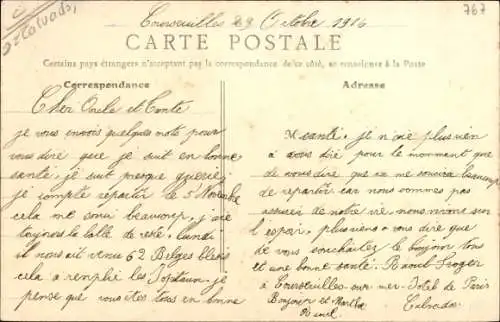 Courseulles 29 Octobre 1916
767
Calvados
CARTE POSTALE
Certains pays étrangers n'acceptant pas la correspondance de ce côté, se renseigner à la Poste
Correspondance
Cher Oncle et Tante
je vous envois quelques mots pour
vous dire que je suit en bonne
santé. je suit presque querie
je compte repartir le 5 Novembre
cela me ennui beaucoup, j'aie
toujours la balle de reste. lundi
il nous ait venue 62 Belges blésés
cela a remplie les j
pense que vous êtes tous en bonne
Adresse
santé. je n'aie plus rien
à vous dire pour le mommant que
de vous dire que sa me beaucoup
de repartir car nous sommes pas
assurer de notre vie nous vivons sur
l'espoir, plus rien a vous dire que
de vous souhaitez le bonjour tous
et une bonne santé. Raoul
à Courseulles-sur-mer Hotel de Paris
Bonjour et Marthe Calvados
Raoul